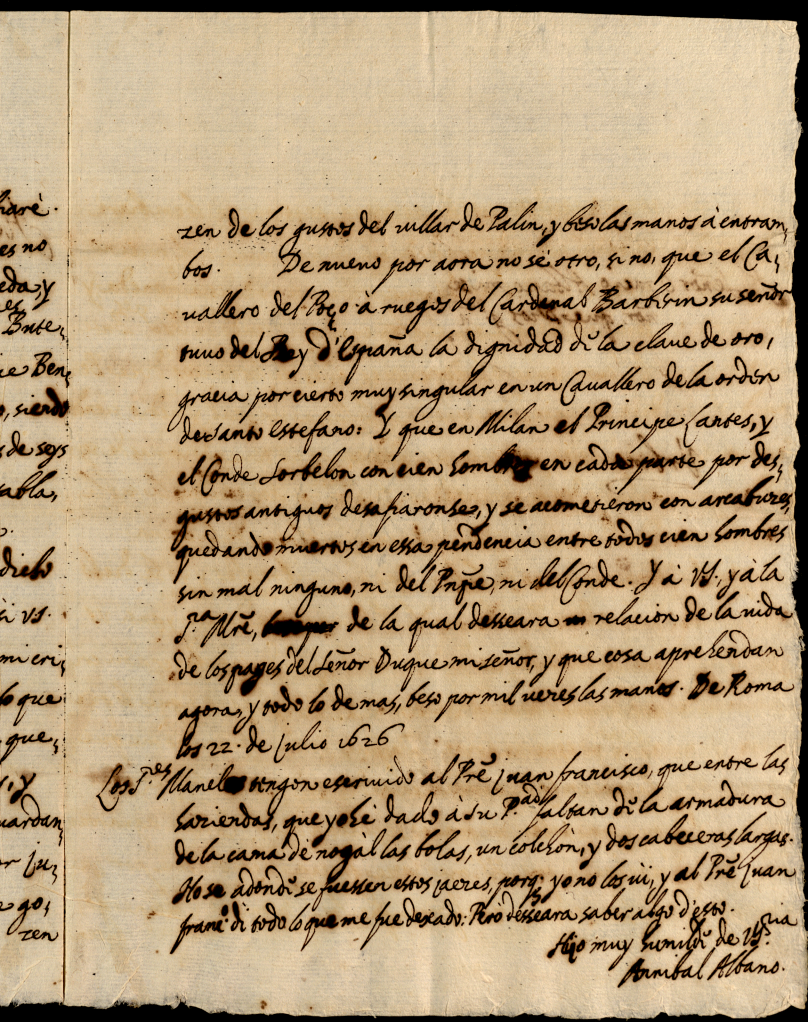 hiarè.
es no
eda, y
es
Bute,
ie Ben,
o, siendo
s de seys
tabla,
dicho
à VS.
mi cri,
lo que
que,
, y
uardan,
or ju,
e go,
zen
zen de los gustos del villar de Palin, y beso las manos à entram,
bos. De nuevo por aora no sè otro, si no, que el Ca,
vallero del Poço à ruegos del Cardenal Barbirin su señor
tuvo del Rey d'España la dignidad de la clave de oro,
gracia por cierto muy singular en un Cavallero de la orden
de santo estefano: Y que en Milan el Principe Cantes, y
el Conde Sorbelon con cien hombres en cada parte por des,
gustos antiguos desafiaronse, y se acometieron con arcabuzes,
quedando muertos en essa pendencia entre todos cien hombres
sin mal ninguno, ni del Pnẽ, ni del Conde. Y à VS. y à la
S.ra Mrẽ, de la qual desseara relacion de la vida
de los pages del Señor Duque mi señor, y que cosa aprehendan
agora, y todo lo de mas, beso por mil vezes las manos. De Roma
los 22. de julio 1626
Los S.es Maneles tengon escrivido al Prẽ juan francisco, que entre las
haziendas, que yo hè dado à su P.ad faltan de la armadura
de la cama de nogàl las bolas, un colchòn, y dos cabeceras largas.
No se adonde se fuessen estos jaezes, porq; yo no los vi, y al Prẽ juan
franc.o di todo lo que me fue dexado. Pero desseara saber algo d'esto.
Hijo muy humilde de VS.ria
Annibal Albano.